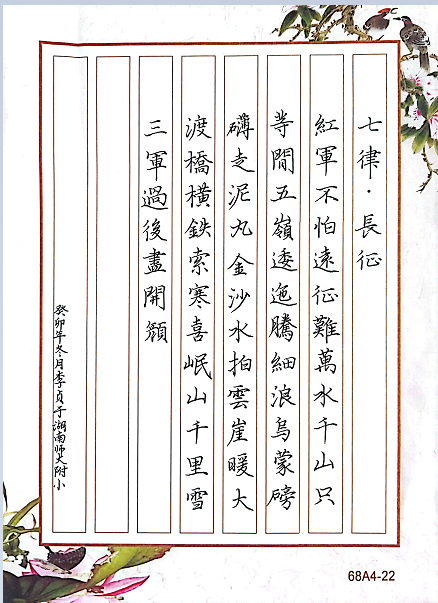 七律·長征
紅軍不怕遠征難萬水千山只
等閒五嶺逶迤騰細浪烏蒙磅
礴走泥丸金沙水拍雲崖暖大
渡橋橫鉄索寒喜岷山千里雪
三軍過後盡開顏
癸卯年冬月李貞于湖南师大附小
68A4-22